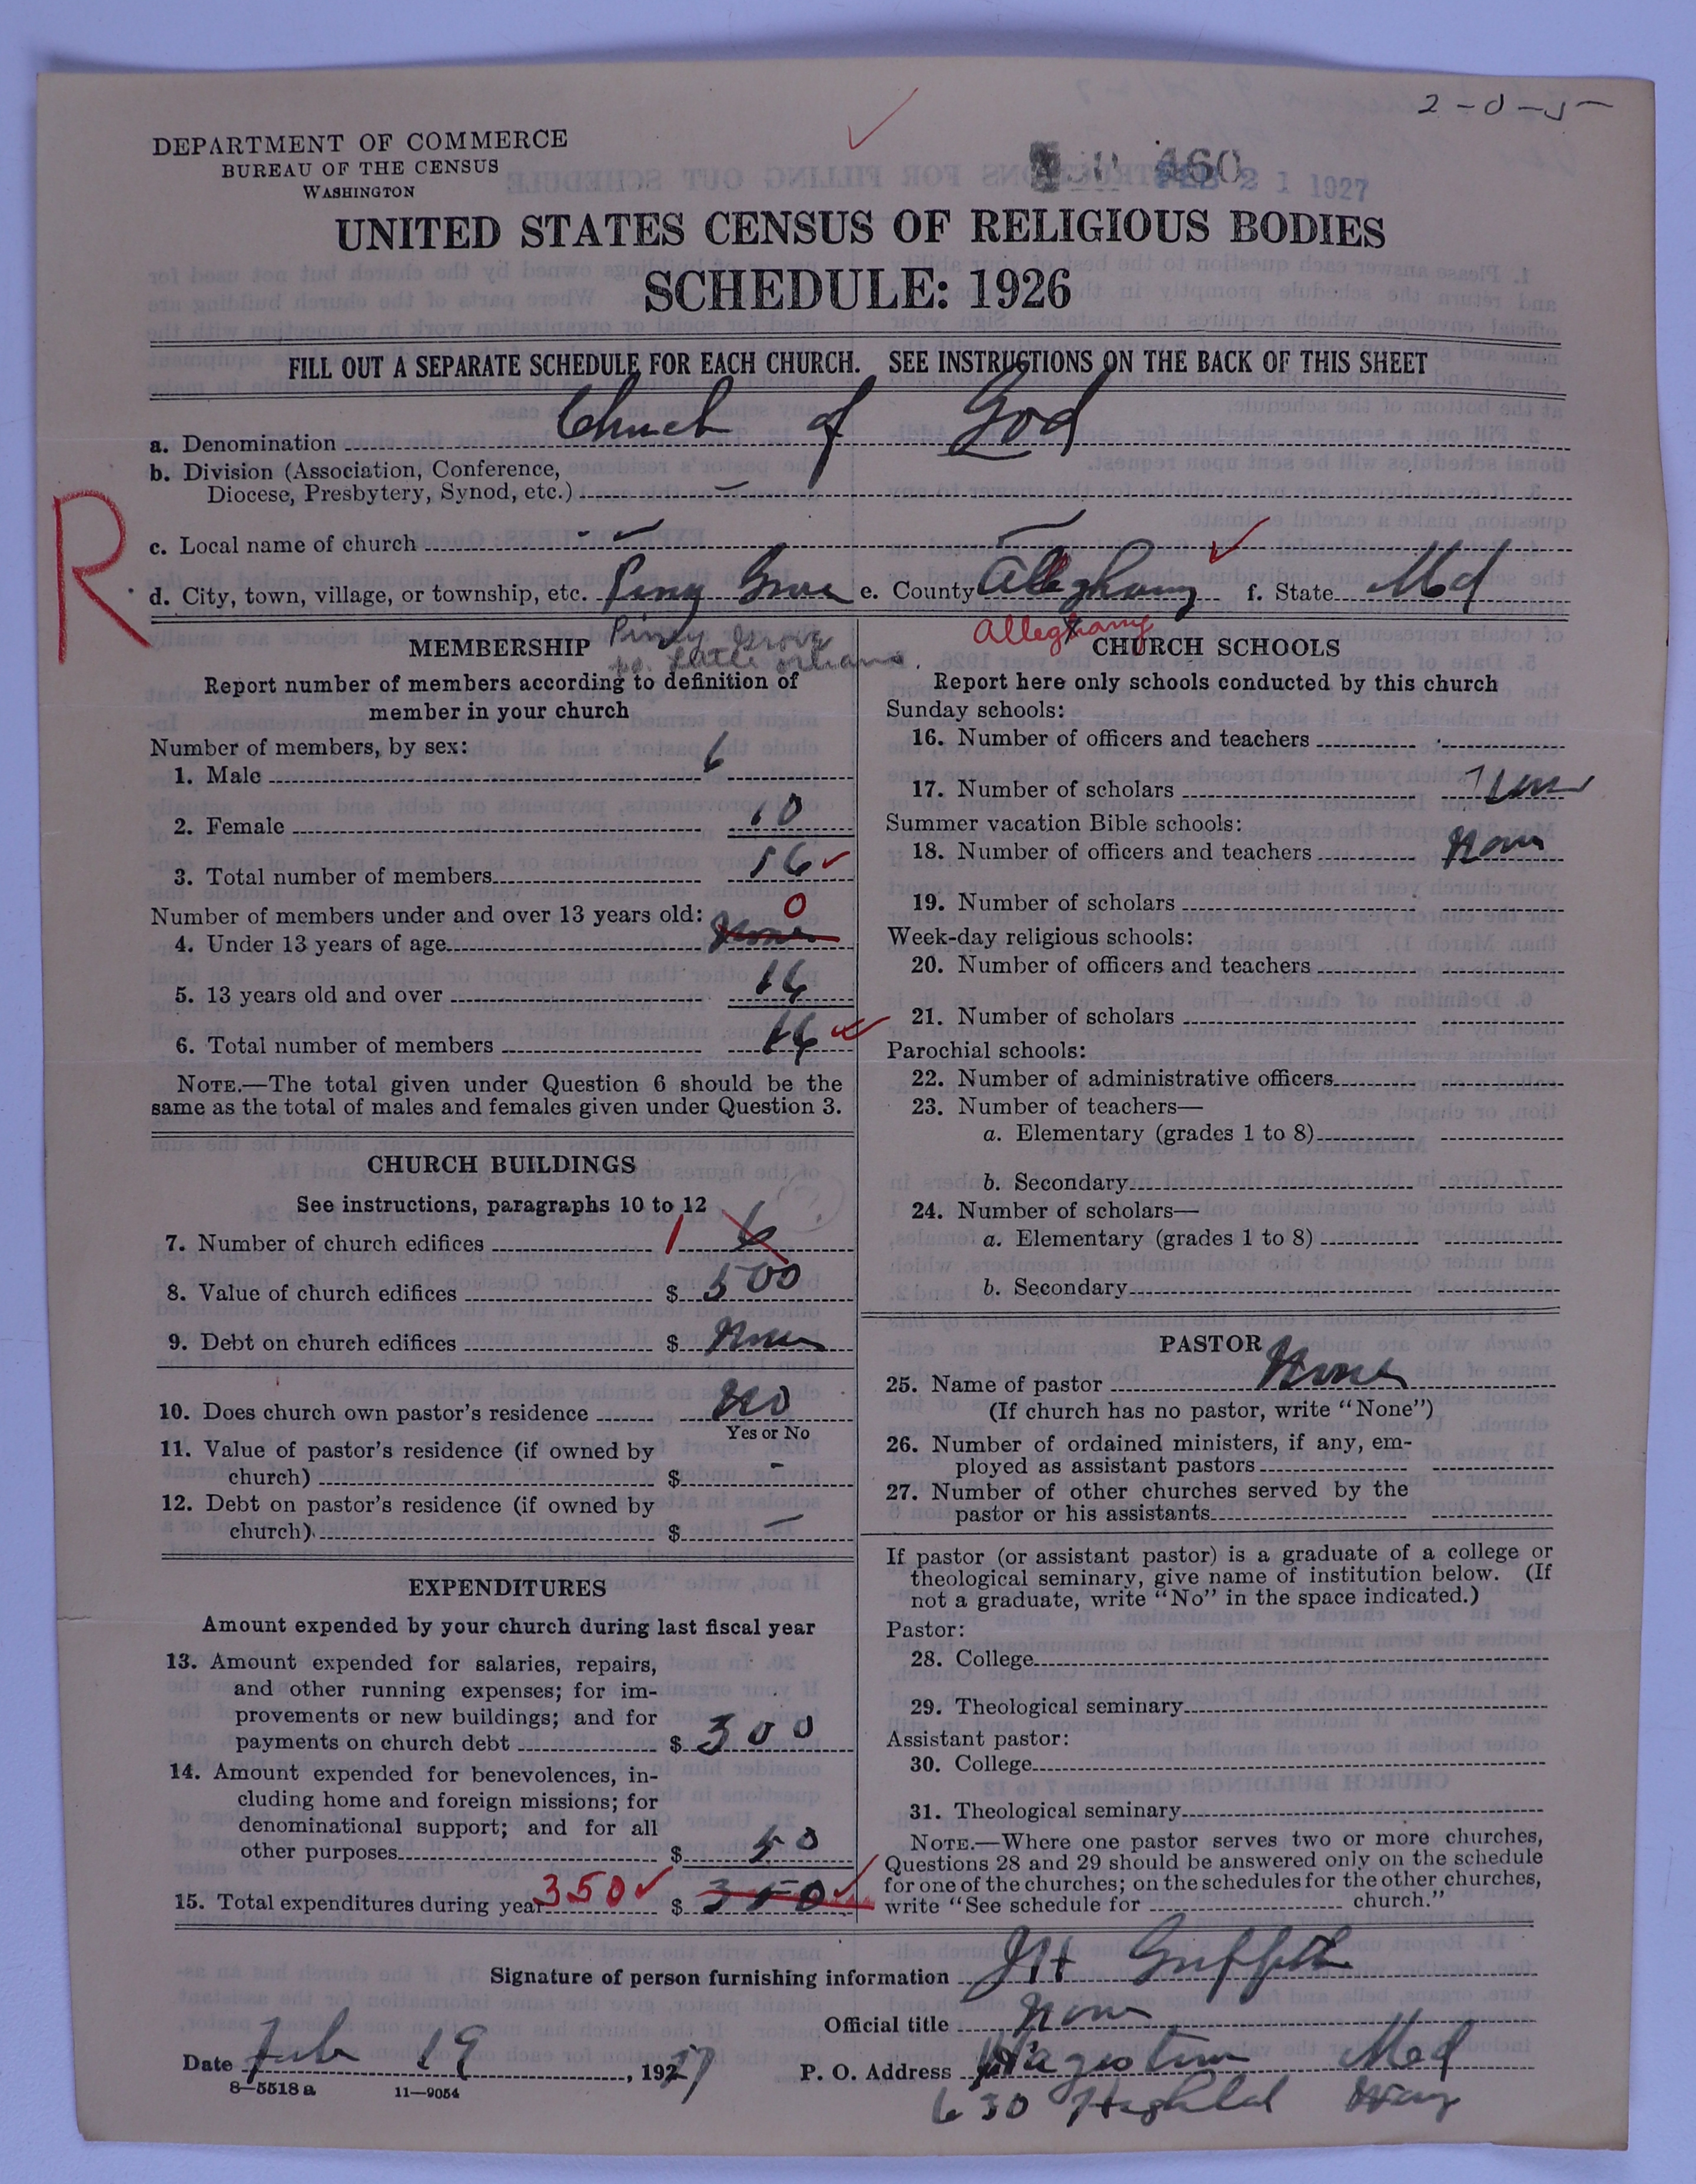 2-0-5
DEPARTMENT OF COMMERCE
BUREAU OF THE CENSUS
WASHINGTON
460
FEB 21 1927
UNITED STATES CENSUS OF RELIGIOUS BODIES
SCHEDULE: 1926
FILL OUT A SEPARATE SCHEDULE FOR EACH CHURCH. SEE INSTRUCTIONS ON THE BACK OF THIS SHEET
a. Denomination Church of God
b. Division (Association, Conference,
Diocese, Presbytery, Synod, etc.) —
R
c. Local name of church - -
d. City, town, village, or township, etc. Piny Grove e. County Alleghany f. State Md
Piney Grove
p.o. Little Orleans.
Alleghany
MEMBERSHIP
Report number of members according to definition of
member in your church
Number of members, by sex:
1. Male 6
2. Female 10
3. Total number of members 16
Number of members under and over 13 years old:
4. Under 13 years of age None 0
5. 13 years old and over 16
6. Total number of members 16
NOTE.—The total given under Question 6 should be the
same as the total of males and females given under Question 3.
CHURCH BUILDINGS
See instructions, paragraphs 10 to 12
7. Number of church edifices 1 6
8. Value of church edifices $ 500
9. Debt on church edifices $ None
10. Does church own pastor's residence No
Yes or No
11. Value of pastor's residence (if owned by
church) $ -
12. Debt on pastor's residence (if owned by
church) $ —
EXPENDITURES
Amount expended by your church during last fiscal year
13. Amount expended for salaries, repairs,
and other running expenses; for im-
provements or new buildings; and for
payments on church debt $ 300
14. Amount expended for benevolences, in-
cluding home and foreign missions; for
denominational support; and for all
other purposes $ 50
15. Total expenditures during year 350 $ 350
CHURCH SCHOOLS
Report here only schools conducted by this church
Sunday schools:
16. Number of officers and teachers
17. Number of scholars None
Summer vacation Bible schools:
18. Number of officers and teachers None
19. Number of scholars
Week-day religious schools:
20. Number of officers and teachers
21. Number of scholars
Parochial schools:
22. Number of administrative officers
23. Number of teachers—
a. Elementary (grades 1 to 8)
b. Secondary
24. Number of scholars—
a. Elementary (grades 1 to 8)
b. Secondary
PASTOR
25. Name of pastor None
(If church has no pastor, write "None")
26. Number of ordained ministers, if any, em-
ployed as assistant pastors
27. Number of other churches served by the
pastor or his assistants
If pastor (or assistant pastor) is a graduate of a college or
theological seminary, give name of institution below. (If
not a graduate, write "No" in the space indicated.)
Pastor:
28. College
29. Theological seminary
Assistant pastor:
30. College
31. Theological seminary
NOTE.—Where one pastor serves two or more churches,
Questions 28 and 29 should be answered only on the schedule
for one of the churches; on the schedules for the other churches,
write "See schedule for church."
Signature of person furnishing information JH Griffith
Official title None
Date Feb 19, 1927 P. O. Address Md
8—5518 a 11—9054
630 Way